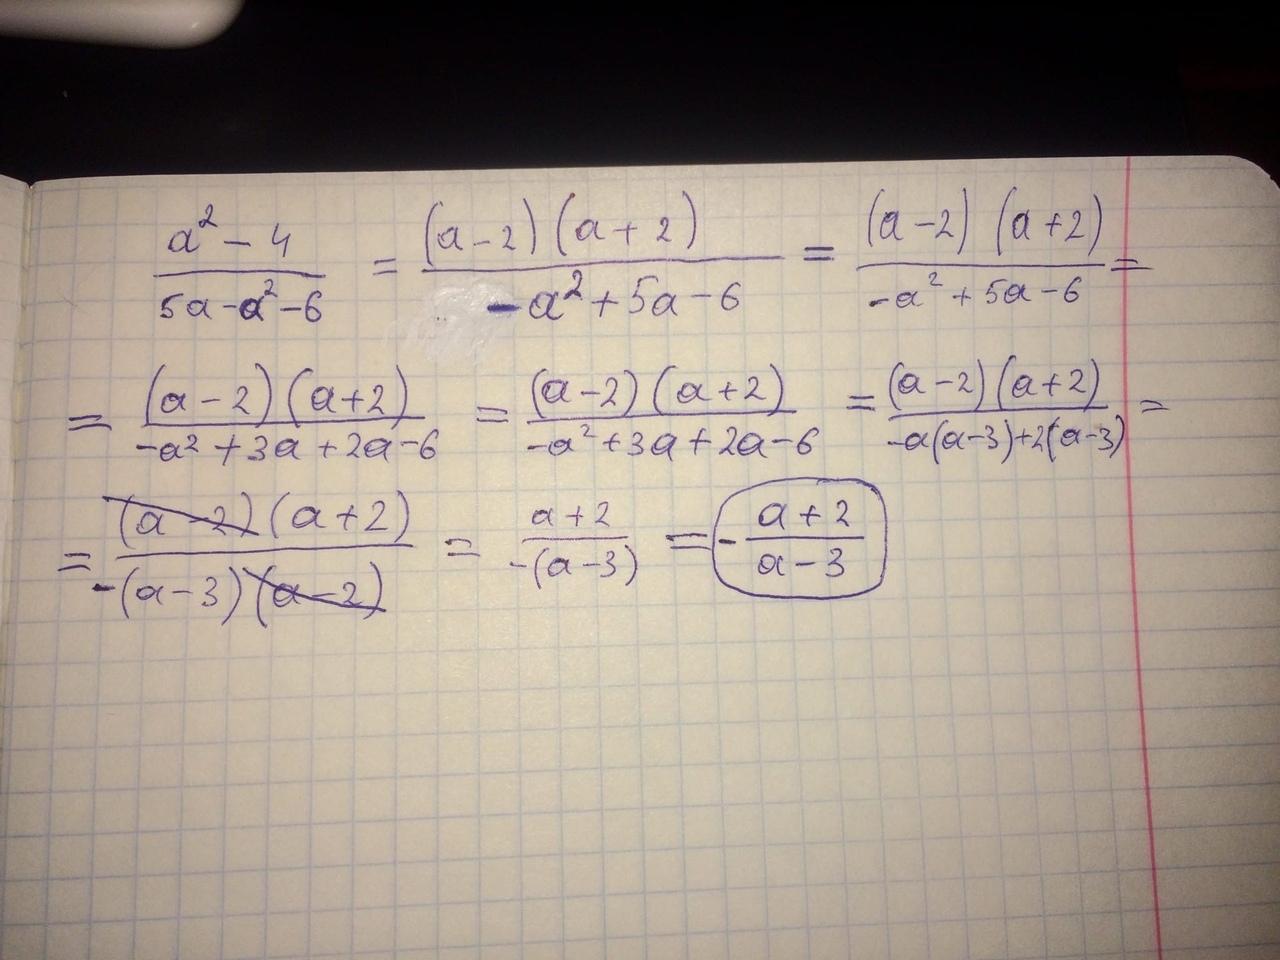 (a² - 4)/(5a - a² - 6) = ((a - 2)(a + 2))/(-a² + 5a - 6) = ((a - 2)(a + 2))/(-a² + 5a - 6) =
= ((a - 2)(a + 2))/(-a² + 3a + 2a - 6) = ((a - 2)(a + 2))/(-a² + 3a + 2a - 6) = ((a - 2)(a + 2))/(-a(a - 3) + 2(a - 3)) =
= ((a - 2)(a + 2))/(-(a - 3)(a - 2)) = (a + 2)/(-(a - 3)) = -(a + 2)/(a - 3)